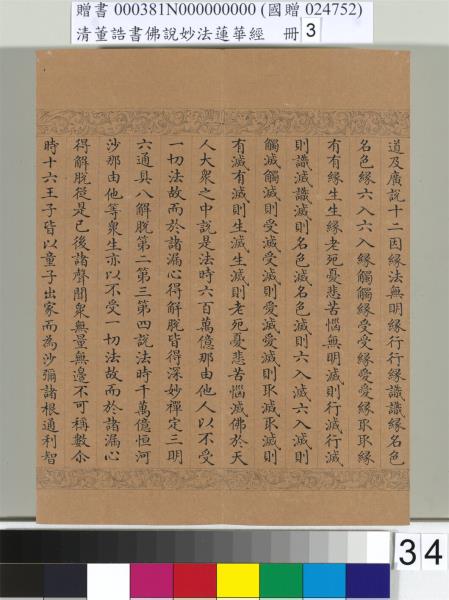 贈書 000381N000000000 (國贈 024752)
清董誥書佛說妙法蓮華經 冊 3
道及廣說十二因緣法無明緣行行緣識識緣名色
名色緣六入六入緣觸觸緣受受緣愛愛緣取取緣
有有緣生生緣老死憂悲苦惱無明滅則行滅行滅
則識滅識滅則名色滅名色滅則六入滅六入滅則
觸滅觸滅則受滅受滅則愛滅愛滅則取滅取滅則
有滅有滅則生滅生滅則老死憂悲苦惱滅佛於天
人大眾之中說是法時六百萬億那由他人以不受
一切法故而於諸漏心得解脫皆得深妙禪定三明
六通具八解脫第二第三第四說法時千萬億恒河
沙那由他等眾生亦以不受一切法故而於諸漏心
得解脫從是已後諸聲聞眾無量無邊不可稱數尒
時十六王子皆以童子出家而為沙彌諸根通利智
34